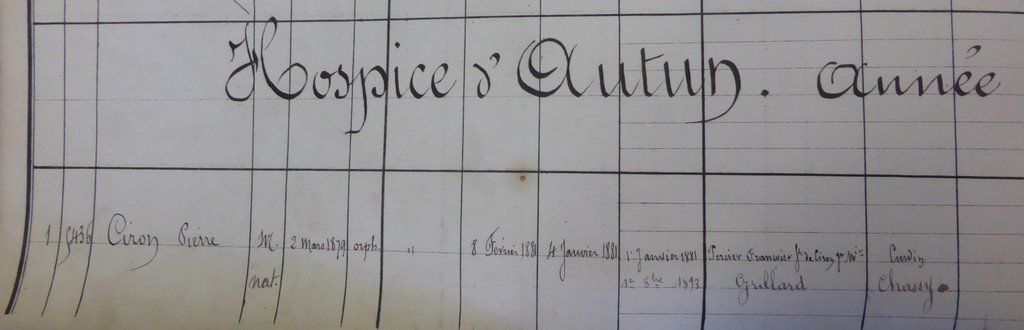 Hospice d'Autun. Année
1 9436 Ciron Pierre M. 2 Mars 1879 orph. " 8 Février 1881 4 Janvier 1881 1er Janvier 1881 Françoise fe de Ciron Curdin
nat. 1er 8bre 1893 Grillard Chassy